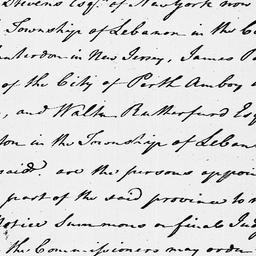 Stevens Esqr. of New York now
Township of Lebanon in the C
unterdon in New Jersey, James Pa
of the City of Perth Amboy a
, and Walter Rutherfurd Esq
ton in the Township of Leban
said are the persons appoin
part of the said province to r
Notice Summons or final Jud
the Commissioners may order